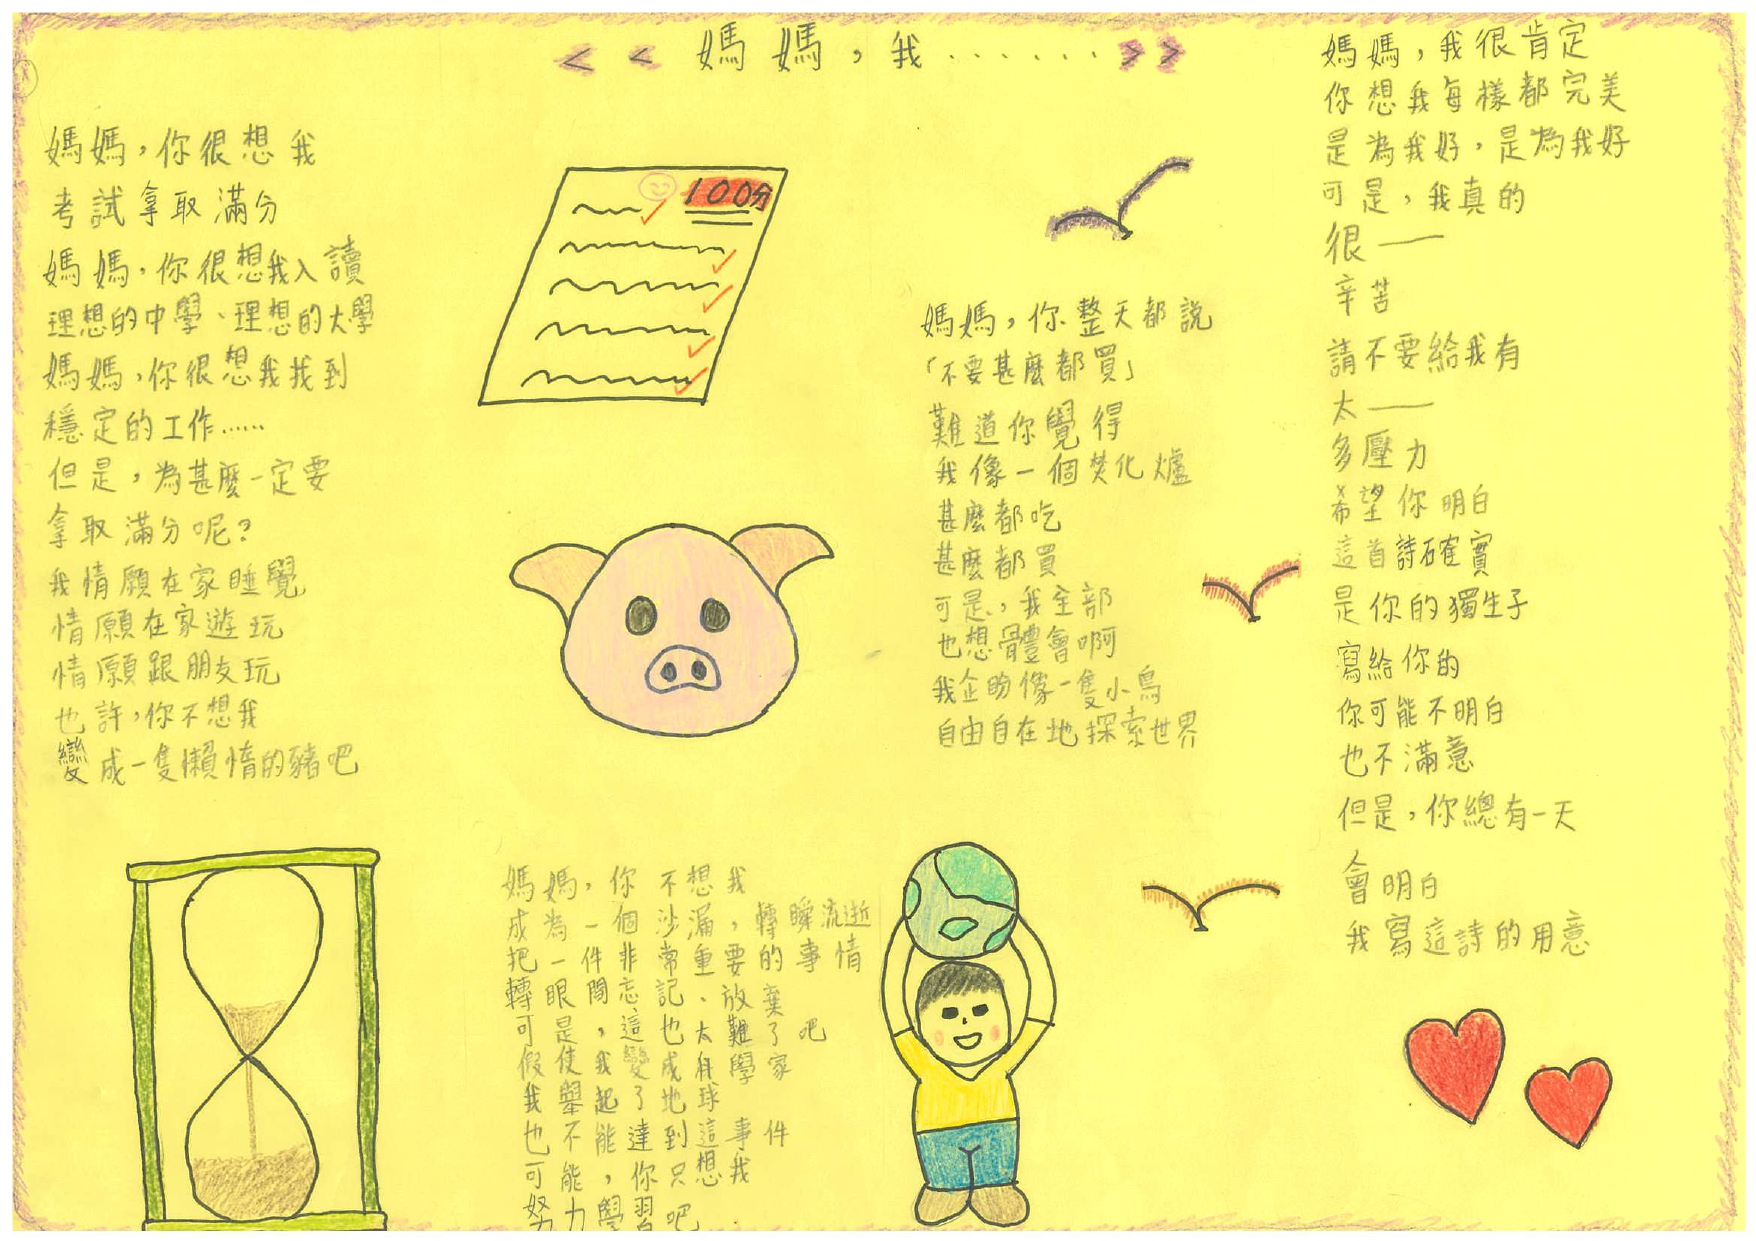 << 媽媽，我......>>
媽媽，你很想我
考試拿取滿分
媽媽，你很想我入讀
理想的中學、理想的大學
媽媽，你很想我找到
穩定的工作……
但是，為甚麼一定要
拿取滿分呢？
我情願在家睡覺
情願在家遊玩
情願跟朋友玩
也許，你不想我
變成一隻懶惰的豬吧
100分
媽媽，你不想我
成為一個沙漏，轉瞬流逝
把一件非常重要的事情
轉眼間忘記、放棄
可是，這也太難了吧
假使我變成科學家
我舉起了地球
也不能達到這事件
可能，你只想我
努力學習吧
媽媽，你整天都說
「不要甚麼都買」
難道你覺得
我像一個焚化爐
甚麼都吃
甚麼都買
可是，我全部
也想體會啊
我企盼像一隻小鳥
自由自在地探索世界
媽媽，我很肯定
你想我每樣都完美
是為我好，是為我好
可是，我真的
很——
辛苦
請不要給我有
太——
多壓力
希望你明白
這首詩確實
是你的獨生子
寫給你的
你可能不明白
也不滿意
但是，你總有一天
會明白
我寫這詩的用意